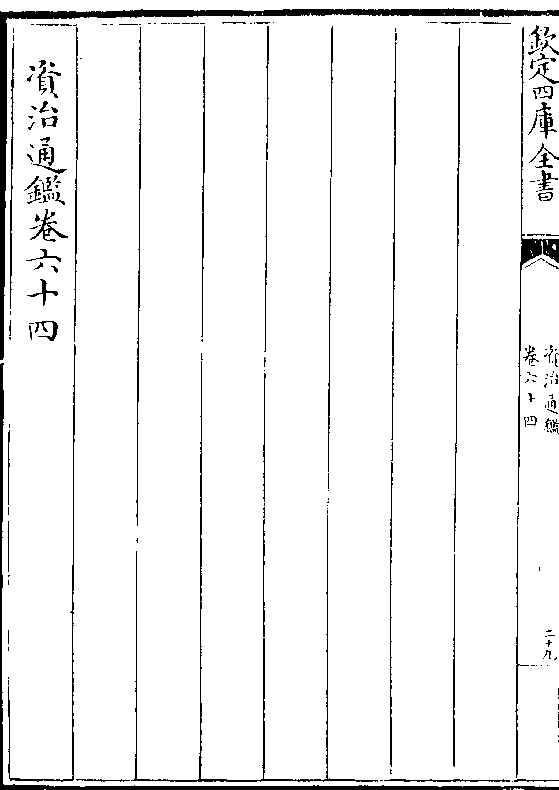 欽定四庫全書
資治通鑑
卷六十四
二十九
資治通鑑卷六十四